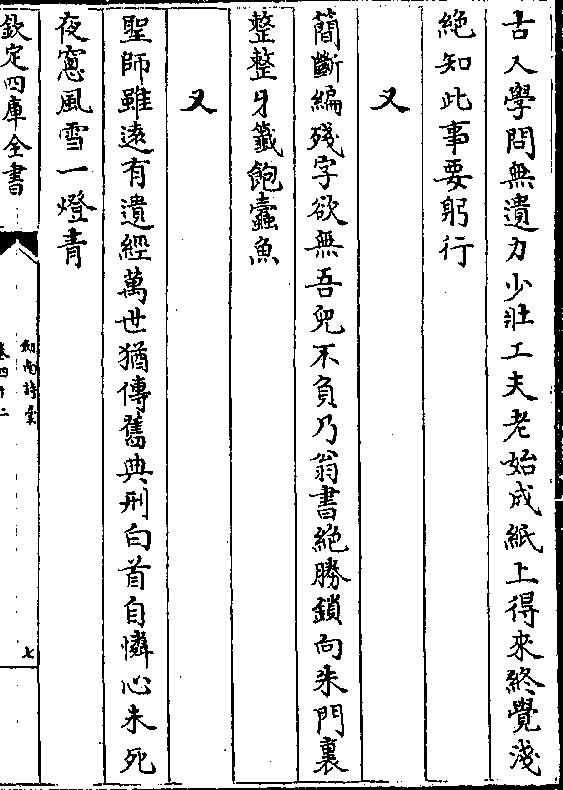 古人學問無遺力少壯工夫老始成紙上得來終覺淺
絶知此事要躬行
又
蕳斷編殘字欲無吾兒不負乃翁書絶勝鎖向朱門裏
整整牙籤飽蠹魚
又
聖師雖逺有遺經萬世猶傳舊典刑白首自憐心未死
夜窻風雪一燈青
欽定四庫全書
劍南詩稾
卷四十二
七